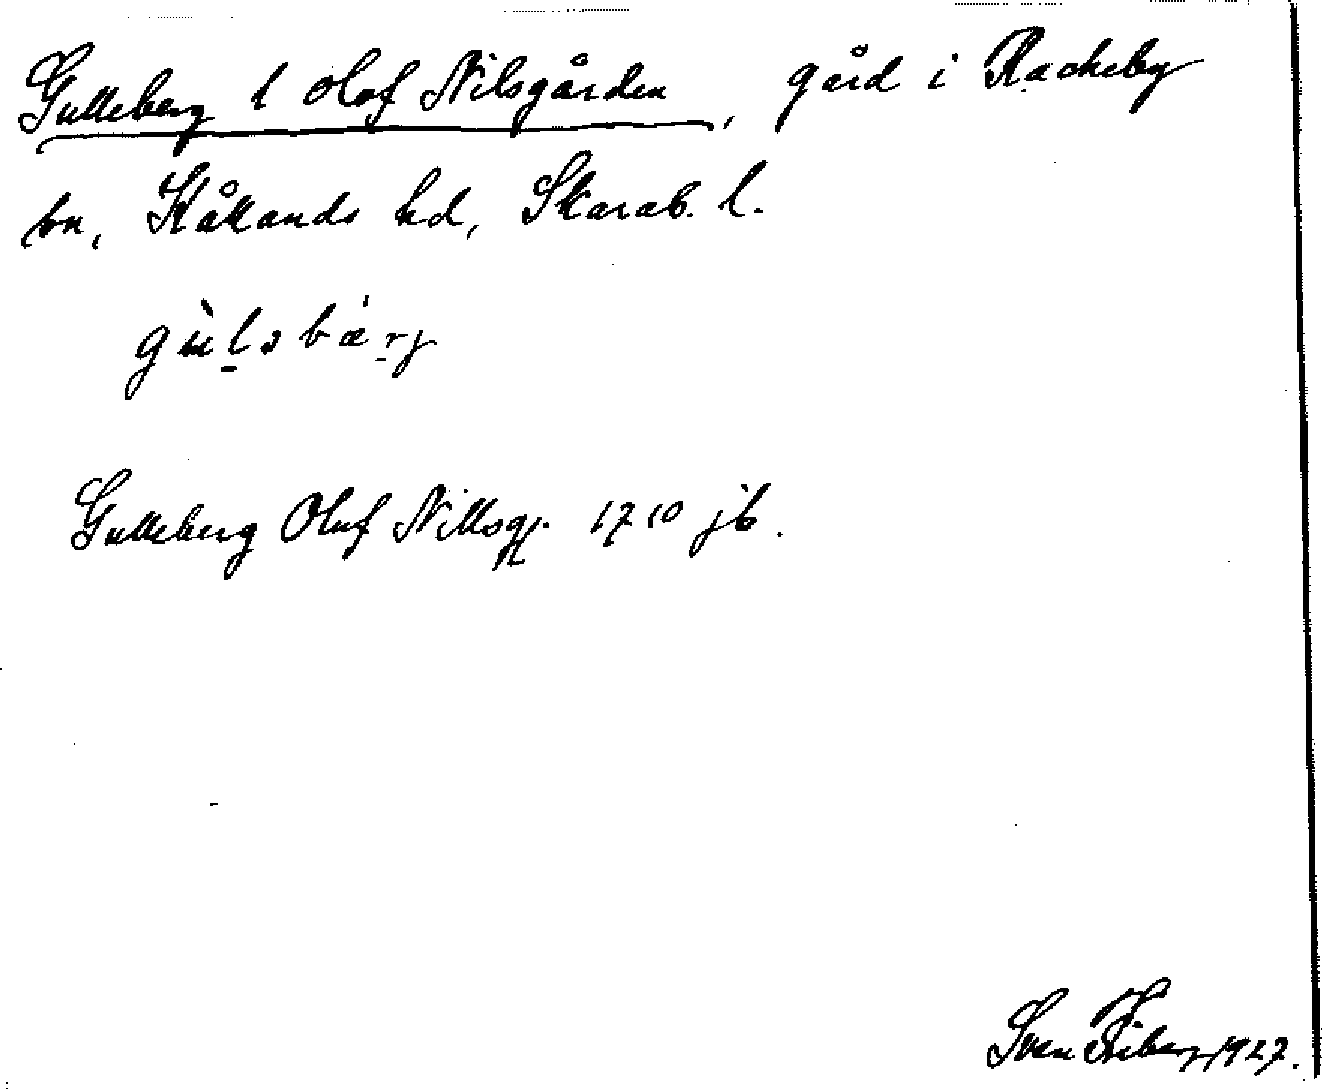 Gulleberg l Olof Nilsgården, gård i Rackeby
sn, Kållands hd, Skarab. l.
gùləbæ̀rj
Gulleberg Oluf Nillsg. 1710 jb.
Sven Friberg 1927.